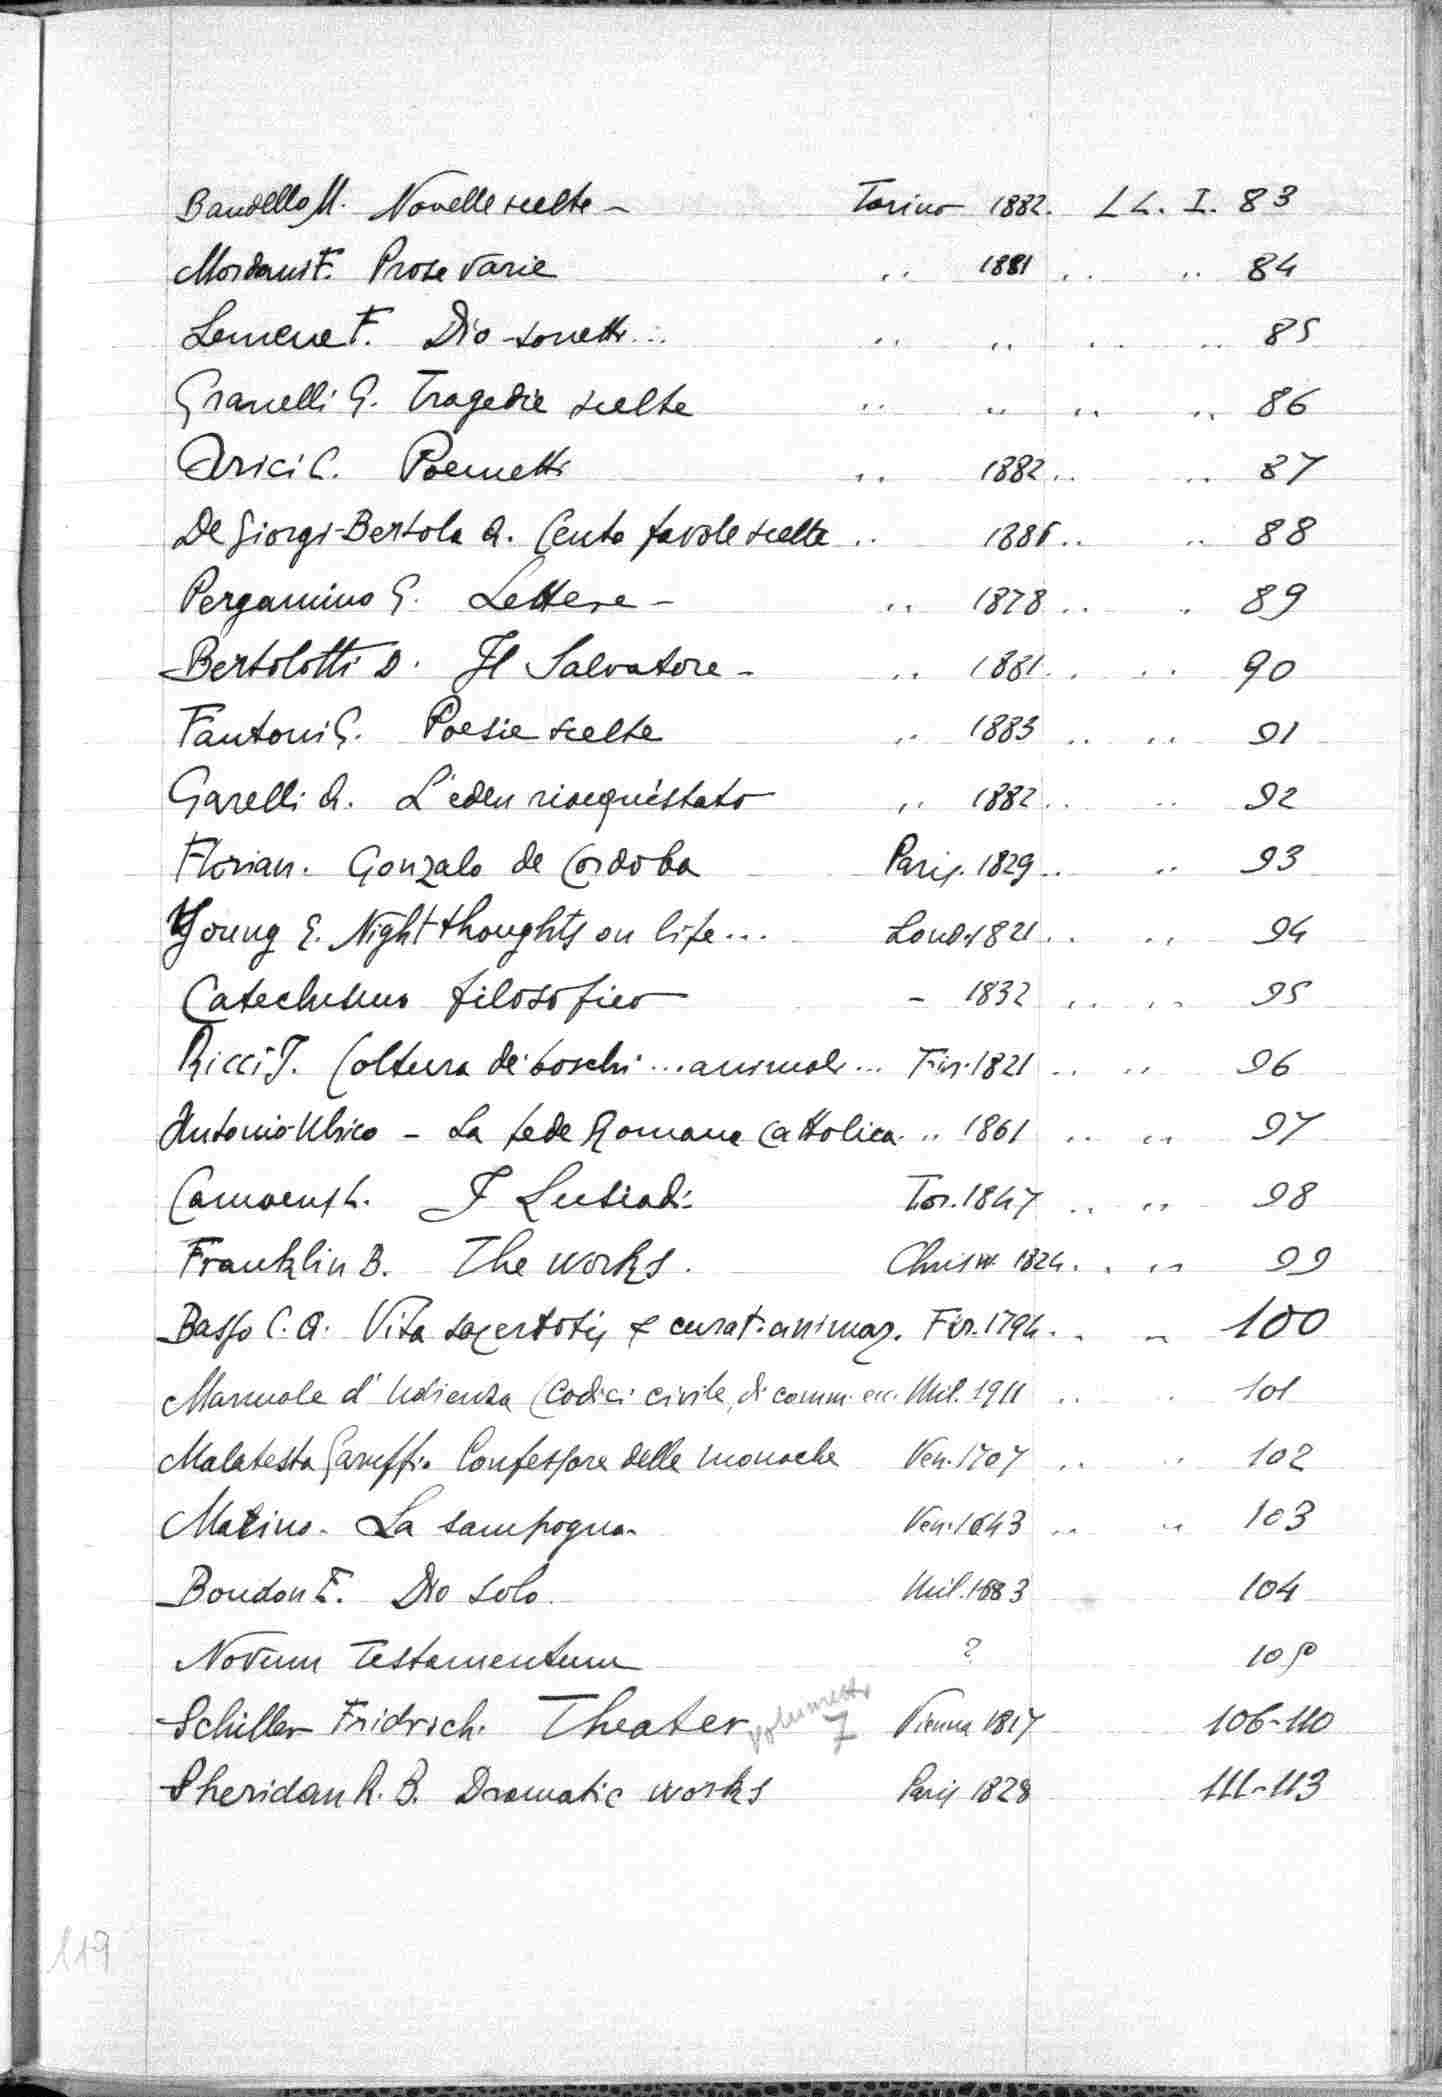 Bandello M. Novelle scelte - Torino 1882. LL. I. 83
Mordani F. Prose varie ,, 1881 ,, ,, 84
Lemene F. Dio - sonetti... ,, ,, ,, ,, 85
Granelli G. Tragedie scelte ,, ,, ,, ,, 86
Arici C. Poemetti ,, 1882 ,, ,, 87
De Giorgi-Bertola A. Cento favole scelte ,, ,, ,, 88
Pergamino G. Lettere - ,, 1878 ,, ,, 89
Bertolotti D. Il Salvatore - ,, 1881 ,, ,, 90
Fantoni G. Poesie scelte ,, 1883 ,, ,, 91
Garelli A. L'eden riacquistato ,, 1882 ,, ,, 92
Florian. Gonzalo de Cordoba Paris. 1829 ,, ,, 93
Young E. Night thoughts on life... Lond. 1821 ,, ,, 94
Catechismo filosofico - 1832 ,, ,, 95
Ricci J. Coltura dei boschi ... animali ... Fir. 1821 ,, ,, 96
Antonio Ulrico - La fede Romana Cattolica ,, 1861 ,, ,, 97
Camoens L. I Lusiadi Tor. 1847 ,, ,, 98
Franklin B. The works. Chisw. 1824 ,, ,, 99
Basso C. A. Vita sacerdotis & curat. animar. Fir. 1794 ,, ,, 100
Manuale d'Udienza (Codici civile, di comm. ecc. Mil. 1911 ,, ,, 101
Malatesta Garuffi. Confessore delle monache Ven. 1707 ,, ,, 102
Marino. La sampogna. Ven. 1643 ,, ,, 103
Boudon E. Dio solo. Mil. 1683 104
Novum Testamentum ? 105
Schiller Fridrich. Theater volumetti 7 Vienna 1817 106-110
Sheridan R. B. Dramatic works Paris 1828 111-113
119